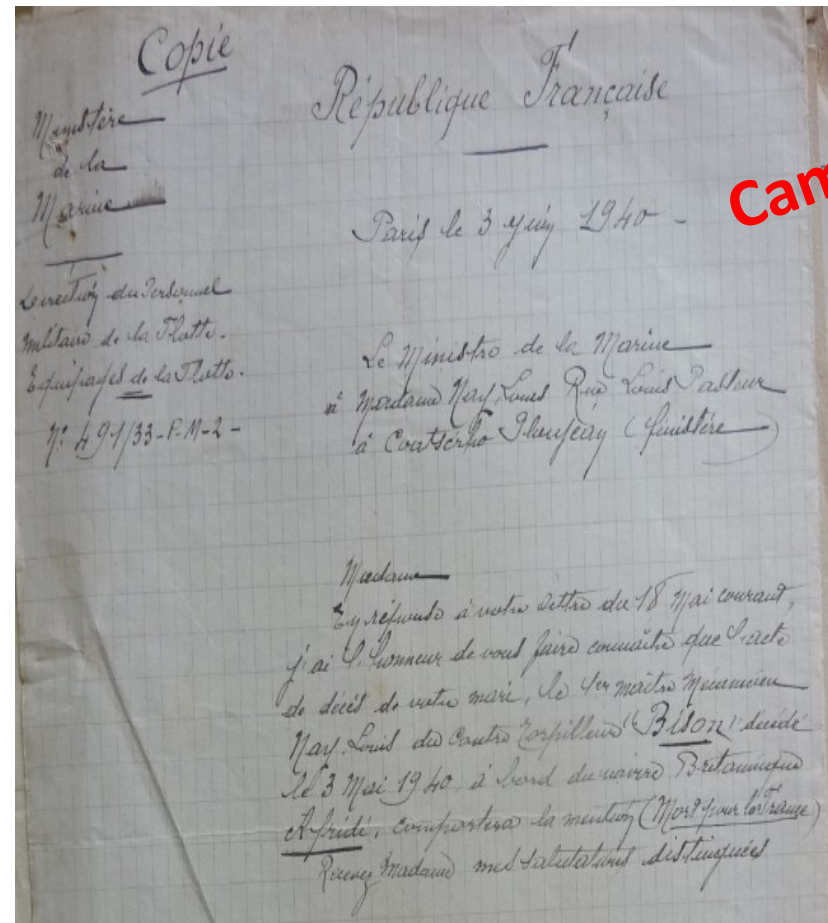 Copie
République Française
Ministère
de la
Marine
Paris le 3 Juin 1940 -
Cam
Direction du Personnel
militaire de la Flotte.
Equipages de la Flotte.
N° 491/33-P-M-2-
Le Ministre de la Marine
à Madame Nay Louis Rue Louis Pasteur
à Coatserho Ploujean (finistère)
Madame
En réponse à votre lettre du 18 Mai courant,
j'ai l'honneur de vous faire connaître que l'acte
de décès de votre mari, le 1er maître Mécanicien
Nay Louis du Contre Torpilleur "Bison" décédé
le 3 Mai 1940, à bord du navire Britannique
Afridi, comportera la mention (Mort pour la France)
Recevez Madame mes salutations distinguées